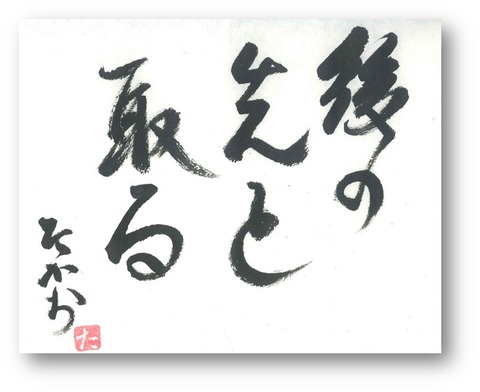 後の
先と
取る
たかお
た